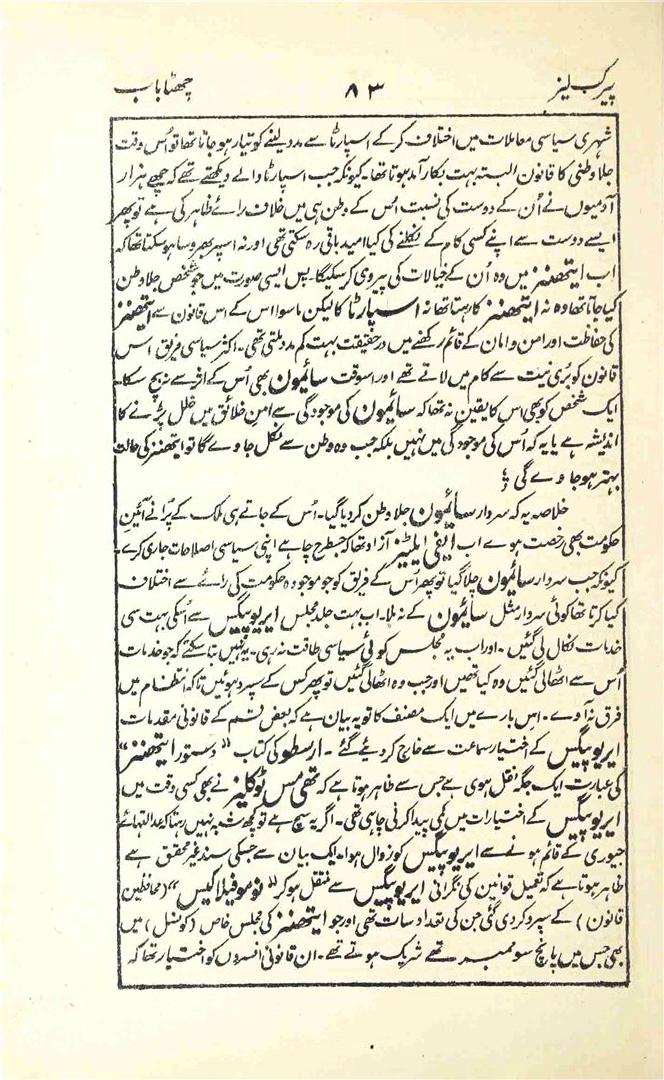 پیرک لیز ۸۳ چھٹا باب
شہری سیاسی معاملات میں اختلاف کرکے اسپارٹا سے مدد لینے کو تیار ہو جاتا تھا تو اُس وقت
جلاوطنی کا قانون البتہ بہت بکار آمد ہوتا تھا۔ کیونکہ جب اسپارٹا والے دیکھتے تھے کہ چھے ہزار
آدمیوں نے اُن کے دوست کی نسبت اُس کے وطن ہی میں خلاف رائے ظاہر کی ہے تو پھر
ایسے دوست سے اپنے کسی کام کے نکلنے کی کیا امید باقی رہ سکتی تھی اور نہ اسپر بھروسا ہو سکتا تھا کہ
اب ایتھنز میں وہ اُن کے خیالات کی پیروی کر سکیگا۔ پس ایسی صورت میں جو شخص جلاوطن
کیا جاتا تھا وہ نہ ایتھنز کا رہتا تھا نہ اسپارٹا کا لیکن ماسوا اس کے اس قانون سے ایتھنز
کی حفاظت اور امن و امان کے قائم رکھنے میں درحقیقت بہت کم مدد ملتی تھی۔ اکثر سیاسی فریق اس
قانون کو بُری نیت سے کام میں لاتے تھے اور اسوقت سائیمون بھی اُس کے اثر سے نہ بچ سکا۔
ایک شخص کو بھی اس کا یقین نہ تھا کہ سائیمون کی موجودگی سے امنِ خلائق میں خلل پڑنے کا
اندیشہ ہے یا یہ کہ اُس کی موجودگی میں نہیں بلکہ جب وہ وطن سے نکل جاوے گا تو ایتھنز کی حالت
بہتر ہو جاوے گی؛
خلاصہ یہ کہ سردار سائیمون جلاوطن کر دیا گیا۔ اُس کے جاتے ہی ملک کے پُرانے آئین
حکومت بھی رخصت ہوے اب ایفی ایلٹیز آزاد تھا کہ جسطرح چاہے اپنی سیاسی اصلاحات جاری کرے۔
کیونکہ جب سردار سائیمون چلا گیا تو پھر اُس کے فریق کو جو موجودہ حکومت کی رائے سے اختلاف
کیا کرتا تھا کوئی سردار مثل سائیمون کے نہ ملا۔ اب بہت جلد مجلس ایریوپیگس سے اُسکی بہت سی
خدمات نکال لی گئیں۔ اور اب یہ مجلس کوئی سیاسی طاقت نہ رہی۔ یہ نہیں بتا سکتے کہ جو خدمات
اُس سے اٹھا لی گئیں وہ کیا تھیں اور جب وہ اٹھا لی گئیں تو پھر کس کے سپرد ہوئیں تا کہ انتظام میں
فرق نہ آوے۔ اِس بارے میں ایک مصنف کا تو یہ بیان ہے کہ بعض قسم کے قانونی مقدمات
ایریوپیگس کے اختیار سماعت سے خارج کر دیے گئے۔ ارسطو کی کتاب ”دستور ایتھنز“
کی عبارت ایک جگہ نقل ہوئی ہے جس سے ظاہر ہوتا ہے کہ تھی مس ٹوکلیز نے بھی کسی وقت میں
ایریوپیگس کے اختیارات میں کمی پیدا کرنی چاہی تھی۔ اگر یہ سچ ہے تو کچھ شبہ نہیں رہتا کہ عدالتہائے
جیوری کے قائم ہونے سے ایریوپیگس کو زوال ہوا۔ ایک بیان سے جسکی سند غیر محقق ہے
ظاہر ہوتا ہے کہ تعمیل قوانین کی نگرانی ایریوپیگس سے منتقل ہو کر ”نوموفیلاکیس“ (محافظین
قانون) کے سپرد کر دی گئی جن کی تعداد سات تھی اور جو ایتھنز کی مجلس خاص (کونسل) میں
بھی جس میں پانچ سو ممبر تھے شریک ہوتے تھے۔ ان قانونی افسروں کو اختیار تھا کہ